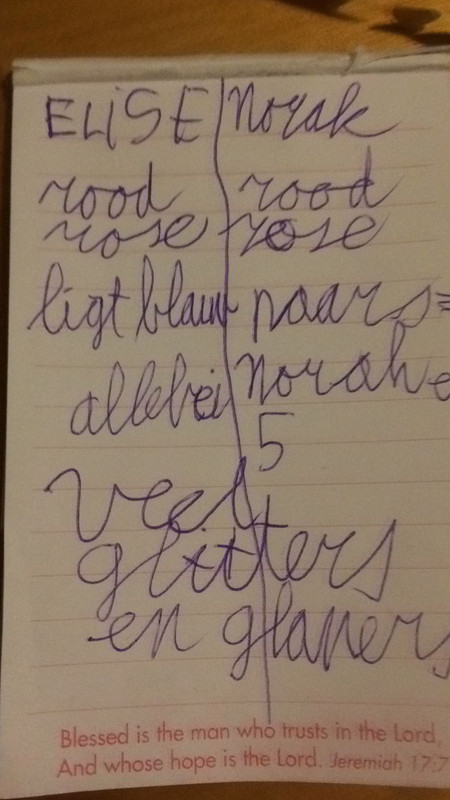 ELiSE norak
rood rood
rose rose
ligt blauw paars=
allebei norah e
5
veel
glitters
en glaners
Blessed is the man who trusts in the Lord,
And whose hope is the Lord. Jeremiah 17:7